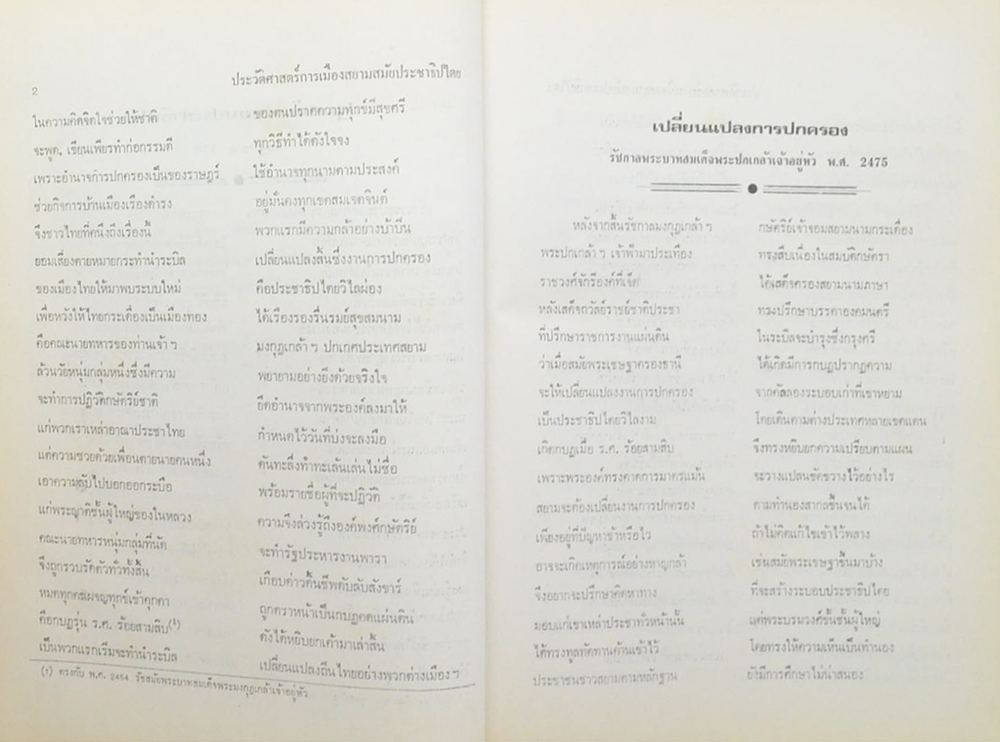 2
ประวัติศาสตร์การเมืองสยามสมัยประชาธิปไตย
ในความคิดจิตใจช่วยให้ชาติ ของตนปราศความทุกข์มีสุขศรี
จะพูด, เขียนเพียรทำก่อกรรมดี ทุกวิธีทำได้ดังใจจง
เพราะอำนาจการปกครองเป็นของราษฎร์ ใช้อำนาจทุกนามตามประสงค์
ช่วยกิจการบ้านเมืองเรืองดำรง อยู่มั่นคงทุกเขตสมเจตจินต์
จึงชาวไทยที่คนึงถึงเรื่องนี้ พวกแรกมีความกล้าอย่างบ้าบิ่น
ยอมเสี่ยงตายหมายกระทำนำระบิล เปลี่ยนแปลงสิ้นซึ่งงานการปกครอง
ของเมืองไทยให้มาพบระบบใหม่ คือประชาธิปไตยวิไลผ่อง
เพื่อหวังให้ไทยกระเดื่องเป็นเมืองทอง ได้เรืองรองรื่นรมย์สุขสมนาม
คือคณะนายทหารของท่านเจ้า ฯ มงกุฎเกล้า ฯ ปกเกศประเทศสยาม
ล้วนวัยหนุ่มกลุ่มหนึ่งซึ่งมีความ พยายามอย่างยิ่งด้วยจริงใจ
จะทำการปฏิวัติกษัตริย์ชาติ ยึดอำนาจจากพระองค์ลงมาให้
แก่พวกเราเหล่าอาณาประชาไทย กำหนดไว้วันที่บ่งจะลงมือ
แต่ความซวยด้วยเพื่อนตายนายคนหนึ่ง ดันทะลึ่งทำทะเล้นเล่นไม่ซื่อ
เอาความลับไปบอกออกระบือ พร้อมรายชื่อผู้ที่จะปฏิวัติ
แก่พระญาติชั้นผู้ใหญ่ของในหลวง ความจึงล่วงรู้ถึงองค์พงศ์กษัตริย์
คณะนายทหารหนุ่มกลุ่มที่นัด จะทำรัฐประหารงานพารา
จึงถูกรวบรัดตัวทั่วทั้งสิ้น เกือบด่าวดิ้นชีพดับลับสังขาร์
หมดทุกคนผจญทุกข์เข้าคุกคา ถูกตราหน้าเป็นกบฏคดแผ่นดิน
คือกบฏรุ่น ร.ศ. ร้อยสามสิบ(¹) ดังได้หยิบยกเค้ามาเล่าสิ้น
เป็นพวกแรกเริ่มจะทำนำระบิล เปลี่ยนแปลงถิ่นไทยอย่างพวกต่างเมือง ฯ
(1) ตรงกับ พ.ศ. 2454 รัชสมัยพระบาทสมเด็จพระมงกุฎเกล้าเจ้าอยู่หัว
เปลี่ยนแปลงการปกครอง
รัชกาลพระบาทสมเด็จพระปกเกล้าเจ้าอยู่หัว พ.ศ. 2475
หลังจากสิ้นรัชกาลมงกุฎเกล้า ฯ กษัตริย์เจ้าจอมสยามนามกระเดื่อง
พระปกเกล้า ฯ เจ้าฟ้ามาประเทือง ทรงสืบเนื่องในสมบัติกษัตรา
ราชวงศ์จักรีองค์ที่เจ็ด ได้เสด็จครองสยามนามภาษา
หลังเสด็จถวัลย์ราชย์ชาติประชา ทรงปรึกษาบรรดาองคมนตรี
ที่ปรึกษาราชการงานแผ่นดิน ในระบิลจะบำรุงซึ่งกรุงศรี
ว่าเมื่อสมัยพระเชษฐาครองธานี ได้เกิดมีการกบฏปรากฏความ
จะให้เปลี่ยนแปลงงานการปกครอง จากคัลลองระบอบเก่าที่เขาหยาม
เป็นประชาธิปไตยวิไลงาม โดยเดินตามต่างประเทศหลายเขตแดน
เกิดกบฏเมื่อ ร.ศ. ร้อยสามสิบ จึงทรงหยิบยกความเปรียบตามแผน
เพราะพระองค์ทรงคาดการมาตรแม้น จะวางแปลนขัดขวางไว้อย่างไร
สยามจะต้องเปลี่ยนงานการปกครอง ตามทำนองสากลชื่นจนได้
เพียงอยู่ที่ปัญหาช้าหรือไว ถ้าไม่คิดแก้ไขเข้าไว้พลาง
อาจจะเกิดเหตุการณ์อย่างหาญกล้า เช่นสมัยพระเชษฐาขึ้นมาบ้าง
จึงอยากจะปรึกษาคิดหาทาง ที่จะสร้างระบอบประชาธิปไตย
มอบแก่เขาเหล่าประชาทั่วหน้านั้น แต่พระบรมวงศ์ชั้นชั้นผู้ใหญ่
ได้ทรงทูลทัดทานค้านเข้าไว้ โดยทรงให้ความเห็นเป็นทำนอง
ประชาชนชาวสยามตามหลักฐาน ยังมีการศึกษาไม่น่าสนอง